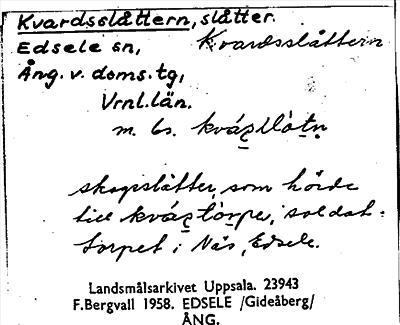 Kvardsslåttern, slåtter.
Edsele sn, Kvardsslåttern
Ång. v. doms. tg,
Vrnl. län.
m. bs.
skogsslåtter, som hörde
till soldat-
torpet i Näs, Edsele.
Landsmålsarkivet Uppsala. 23943
F. Bergvall 1958. EDSELE /Gideåberg/
ÅNG.